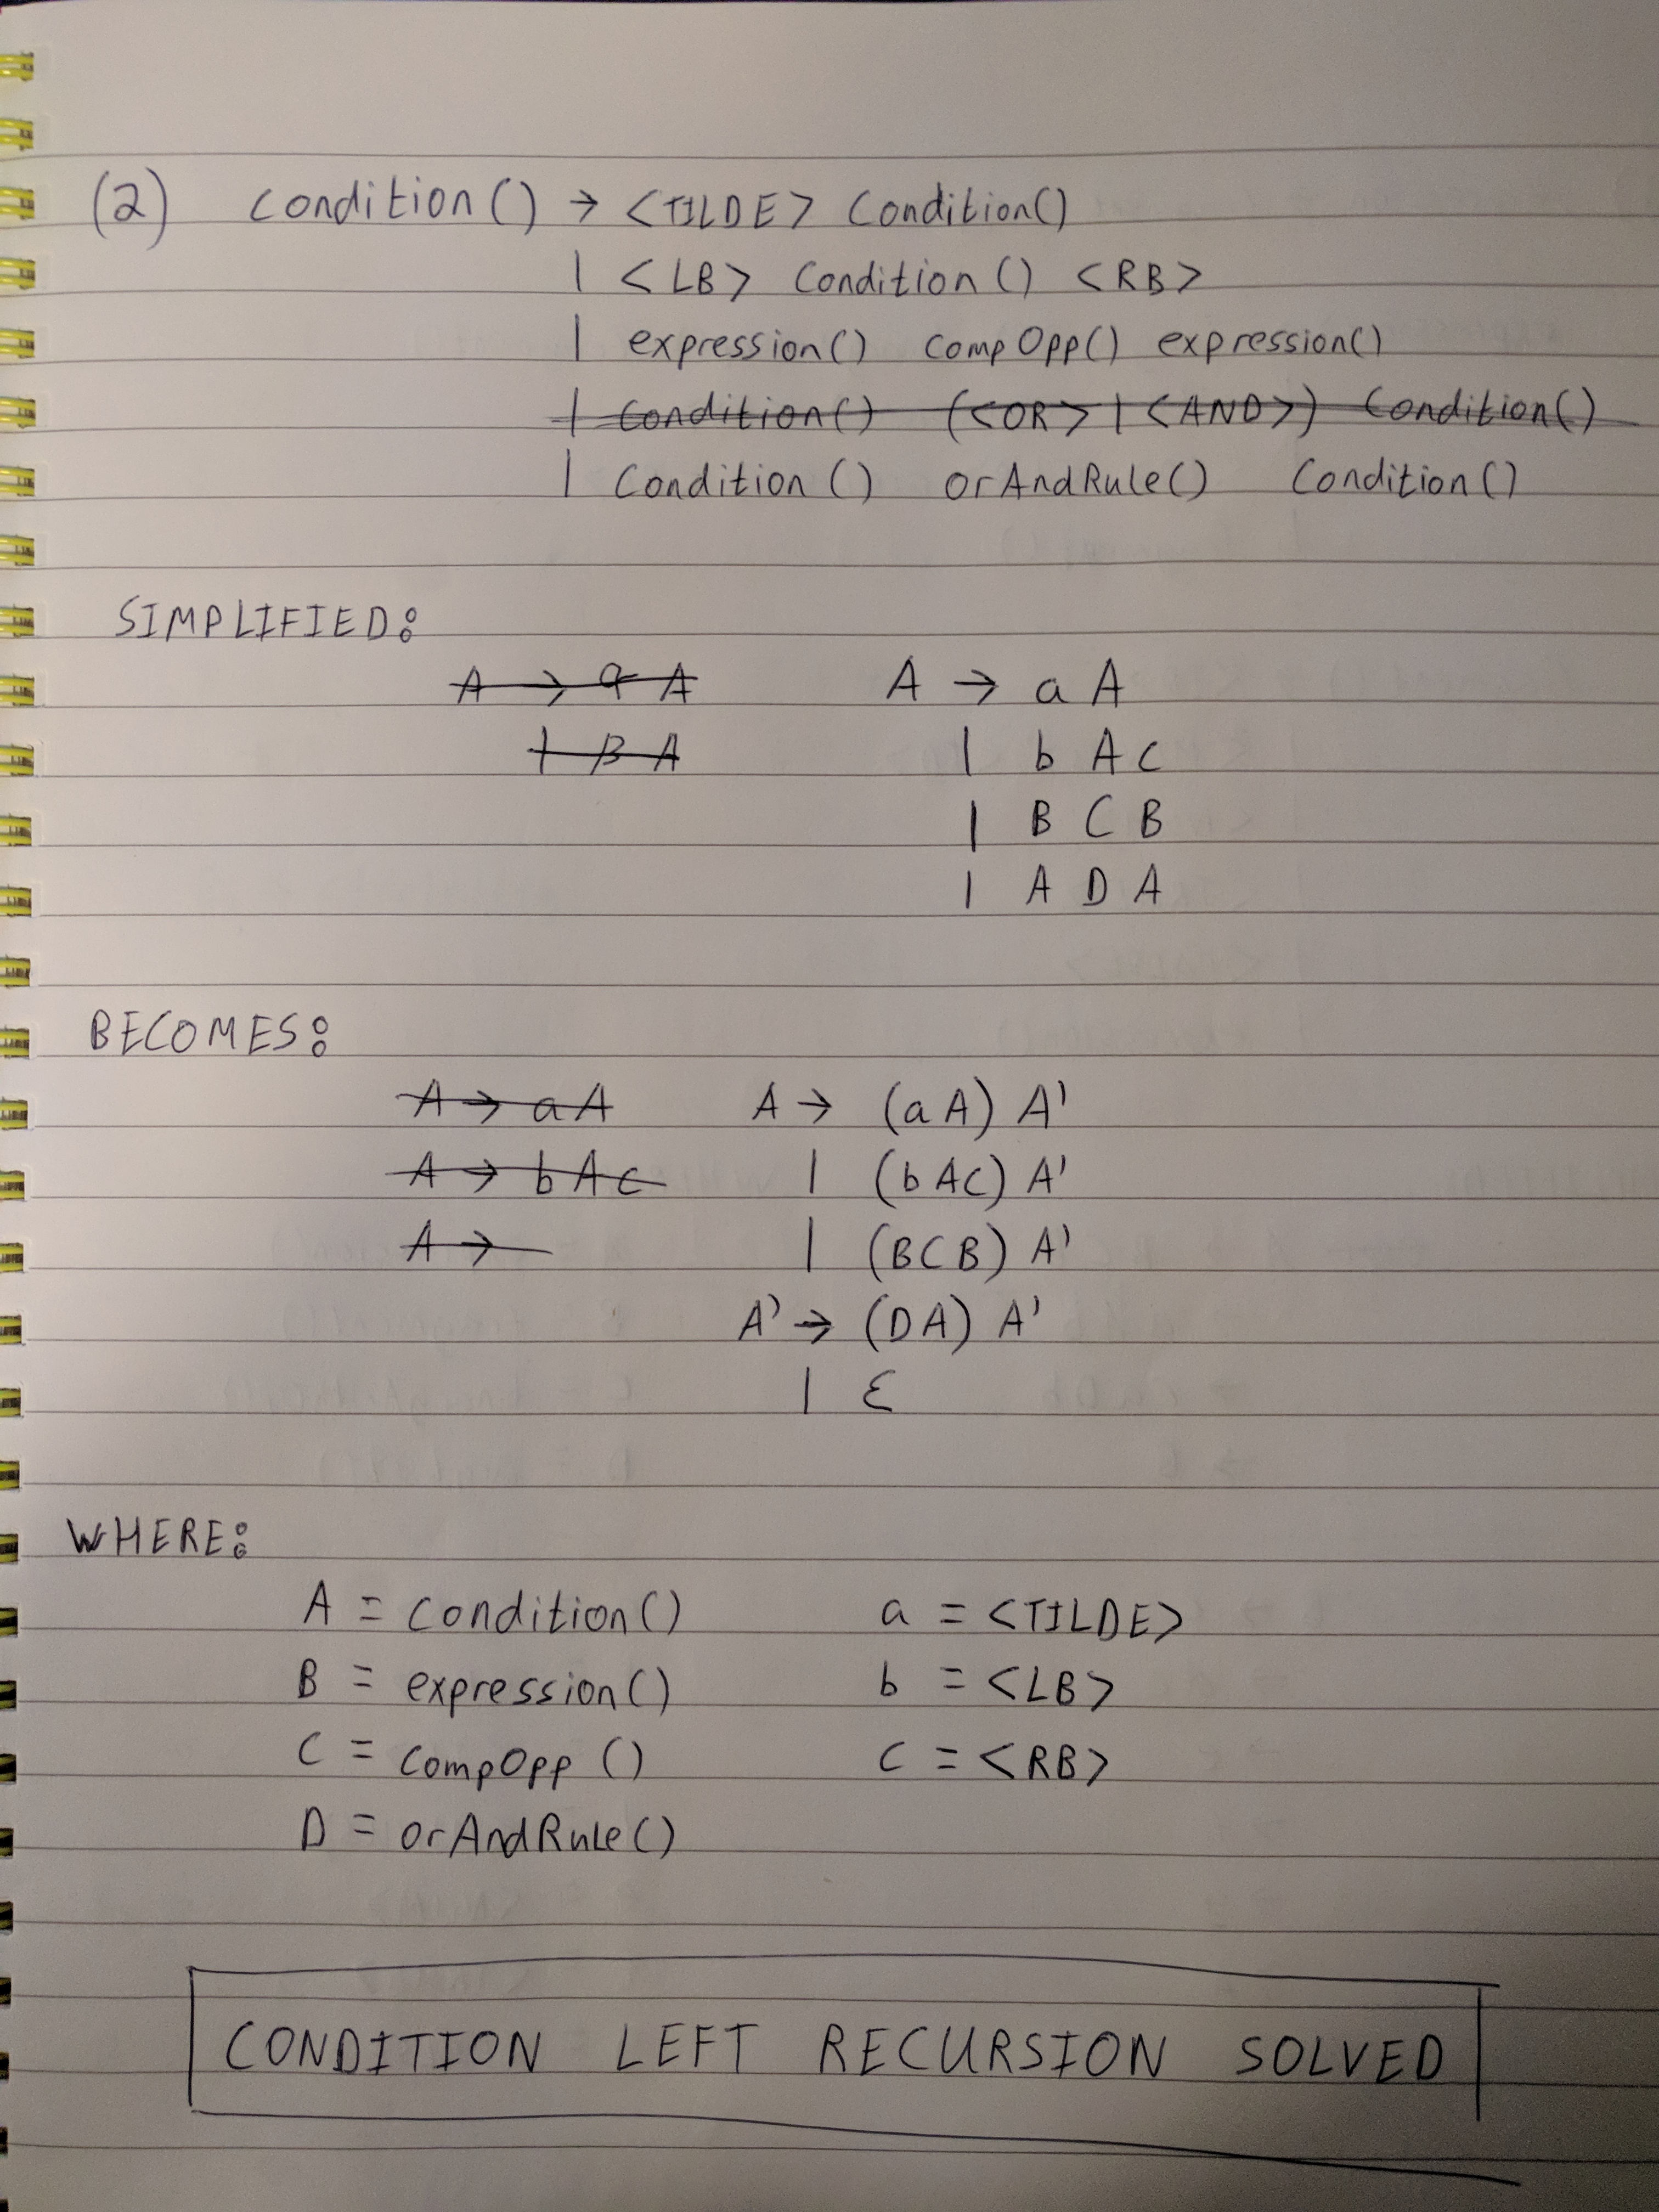 (2) Condition() → <TILDE> Condition()
| <LB> Condition() <RB>
| expression() compOpp() expression()
| Condition() (<OR> | <AND>) Condition()
| Condition() orAndRule() Condition()
SIMPLIFIED:
A → a A A → a A
| B A | b A c
| B C B
| A D A
BECOMES:
A → a A A → (a A) A'
A → b A c | (b A c) A'
A → | (B C B) A'
A' → (D A) A'
| ε
WHERE:
A = Condition() a = <TILDE>
B = expression() b = <LB>
C = CompOpp () c = <RB>
D = orAndRule()
CONDITION LEFT RECURSION SOLVED